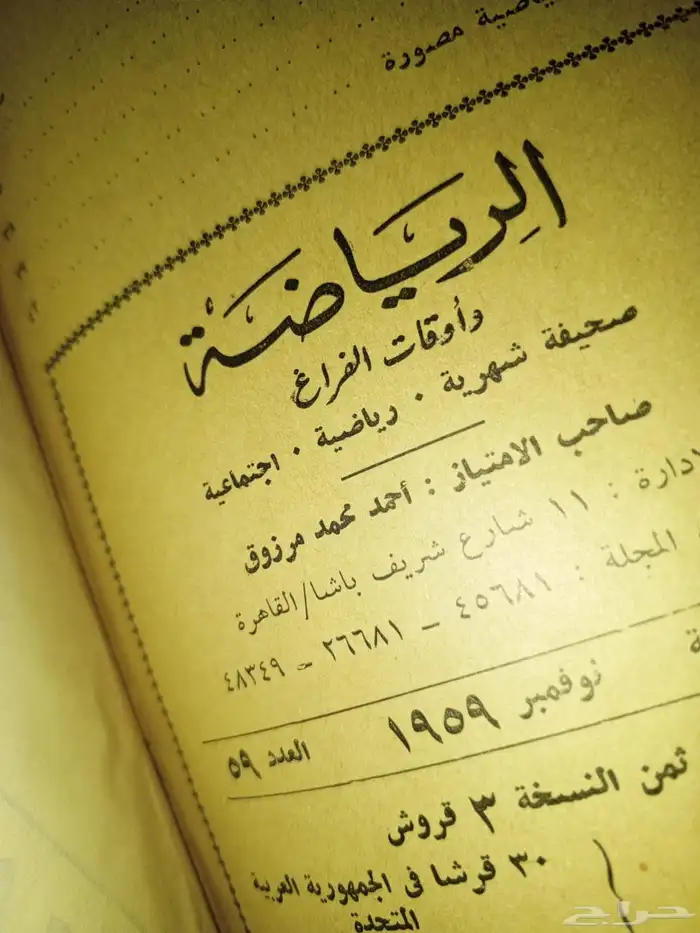 مصورة
الرياضة
وأوقات الفراغ
صحيفة شهرية . رياضية . اجتماعية
صاحب الامتياز : أحمد محمد مرزوق
١١ شارع شريف باشا/القاهرة
المجلة : ٤٥٦٨١ – ٢٦٦٨١ – ٤٨٣٤٩
نوفمبر ١٩٥٩
العدد ٥٩
ثمن النسخة ٣ قروش
٣٠ قرشا فى الجمهورية العربية
المتحدة
حراج